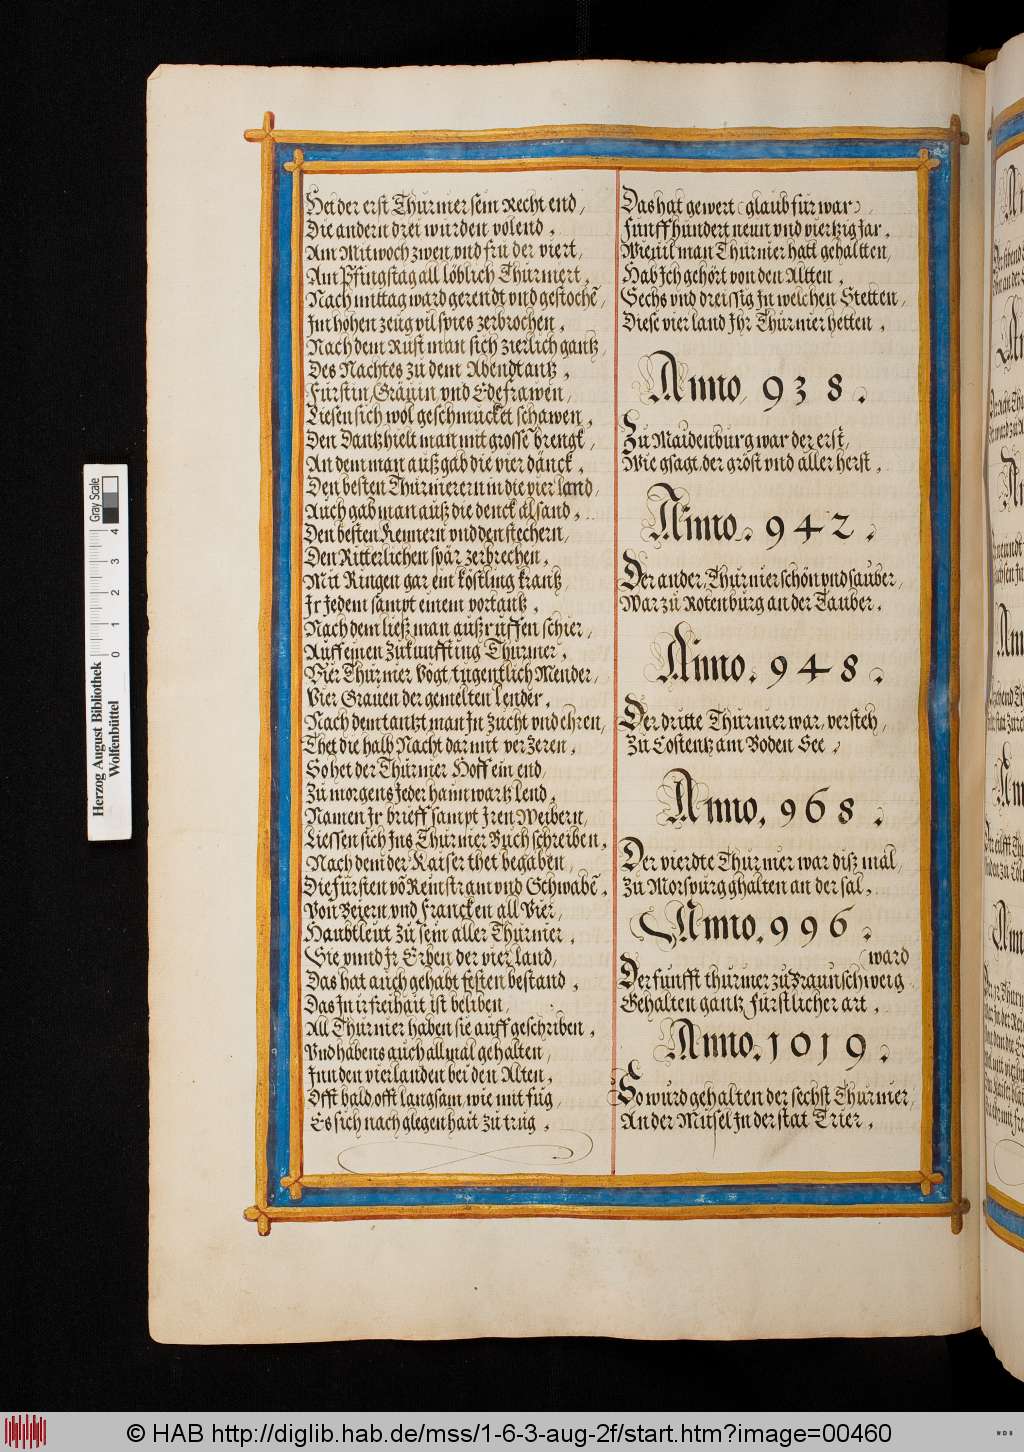 Het der erst Thurnier sein Recht end /
Die andern drei wurden volend .
Am Mitwoch zwen, vnd fru der viert /
Am Pfingstag all löblich Thurniert .
Nach mittag ward gerendt vnd gestochē /
Im hohen zeug vil spies zerbrochen .
Nach dem Rust man sich zierlich gantz /
Des Nachtes zu dem Abendtantz .
Fürstin, Gräuin vnd Edefrawen /
Liesen sich wol geschmucket schawen .
Den Dantz hielt man mit grosse brengk /
An dem man außgab die vier dänck .
Den besten Thurnierern in die vier land /
Auch gab man auß die denck alsand .
Den besten Rennern vnd den stechern /
Den Ritterlichen spär zerbrechen .
Mit Ringen gar ein köstling krantz
Ir Jedem sampt einem vortantz .
Nach dem ließ man außruffen schier /
Auff einen zukunffting Thurnier .
Vier Thurnier Vögt tugentlich Mender /
Vier Grauen der gemelten lender .
Nach dem tantzt man In Zucht vnd ehren /
Thet die halb Nacht darmit verzeren .
So het der Thurnier Hoff ein end /
Zu morgens Jeder haimwartz lend .
Namen Ir brieff sampt Iren Weibern /
Liessen sich Ins Thurnier Buch schreiben .
Nach dem der Kaiser thet begaben /
Die fursten vō Reinstram vnd Schwabē .
Von Beiern vnd francken all Vier /
Haubtleut zu sein aller Thurnier .
Sie vnnd Ir Erben der vier land /
Das hat auch gehabt festen bestand .
Das In ir freihait ist beliben /
All Thurnier haben sie auff geschriben .
Vnd habens auch allmal gehalten /
Inn den vier landen bei den Alten .
Offt bald, offt langsam, wie mit fug /
Es sich nach glegenhait zu trug .
Das hat gewert (glaub fur war) /
funffhundert neun vnd viertzig Jar .
Wieuil man Thurnier hatt gehaltten /
Hab Ich gehört von den Altten .
Sechs vnd dreissig In welchen Stetten /
Diese vier land Ihr Thurnier hetten .
Anno 938 .
Zu Maidenburg war der erst /
Wie gsagt, der gröst vnd aller herst .
Anno. 942 .
Der ander Thurnier schön vnd sauber /
War zu Rotenburg an der Tauber .
Anno. 948 .
Der dritte Thurnier war, versteh /
Zu Costentz am Boden See .
Anno. 968 .
Der vierdte Thurnier war diß mal /
Zu Morspurg ghalten an der sal .
Anno. 996 .
(ward
Der funfft thurnier zu Braunschweig
Gehalten gantz Fürstlicher art .
Anno. 1019 .
So wurd gehalten der sechst Thurnier /
An der Musel In der stat Trier .
Herzog August Bibliothek
Wolfenbüttel
Gray Scale
0 1 2 3 4
© HAB http://diglib.hab.de/mss/1-6-3-aug-2f/start.htm?image=00460